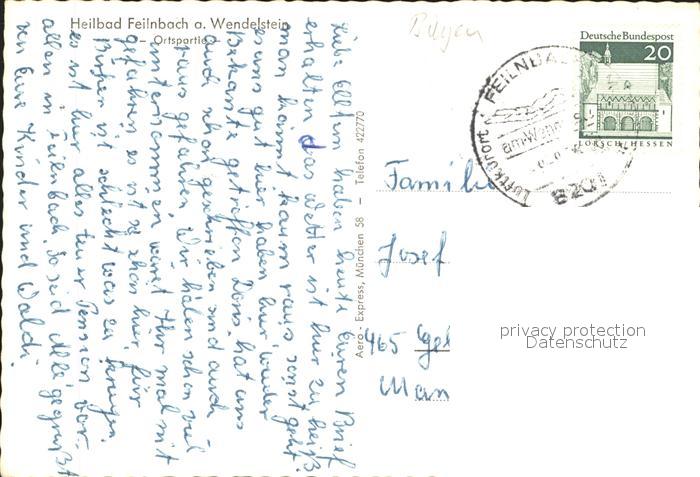 Heilbad Feilnbach a. Wendelstein
— Ortspartie
Liebe Eltern haben heute Euren Brief
erhalten das Wetter ist hier zu heiß
man kommt kaum raus sonst geht
es uns gut hier haben hier wieder
Bekannte getroffen Doris hat uns
auch schon geschrieben und auch
raus gefunden Wir haben schon viel
unternommen wenn Ihr mal mit
gefahren es ist schön hier für
ist schlecht was zu
es ist hier alles teuer Pension vor-
allen in Feilnbach. So seid Alle gegrüßt
von Eure Kinder und Waldi.
Aero - Express, München 58 — Telefon 422770
Bayern
Deutsche Bundespost
20
LORSCH/HESSEN
FEILNBA
Luftkurort
am Wend
8201
Famili
Josef
465 Gel
Man
privacy protection
Datenschutz